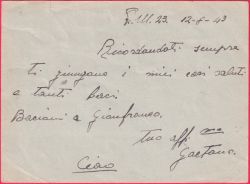 P.M. 23. 12-8-43
Ricordandoti sempre
ti giungano i miei cari saluti
e tanti baci
Bacioni a Gianfranco.
tuo aff.mo
Gaetano.
Ciao